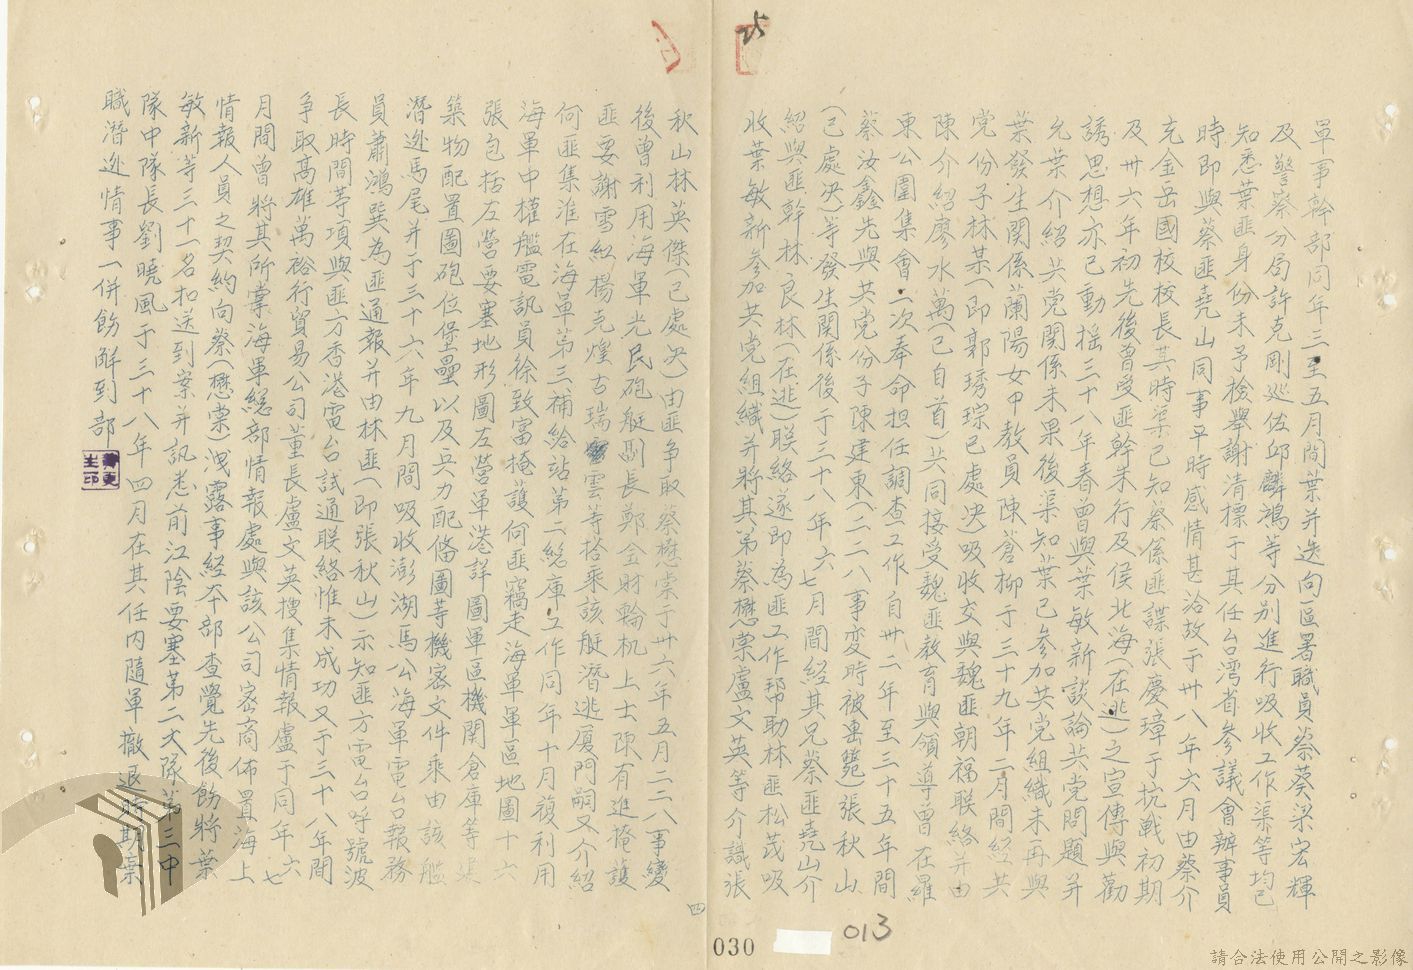 單事幹部同年三至五月間葉并迭向區署職員蔡葵梁宏輝
及警察分局許克剛巡佐邱麟鴻等分別進行吸收工作渠等均已
知悉葉匪身份未予檢舉謝清標于其任台湾省參議會辦事員
時即與蔡匪堯山同事平時感情甚洽故于卅八年六月由蔡介
充金岳國校校長其時渠已知蔡係匪諜張慶璋于抗戰初期
及卅六年初先後曾受匪幹朱行及侯北海(在逃)之宣傳與勸
誘思想亦已動搖三十八年春曾與葉敏新談論共党問題并
允葉介紹共党關係未果後渠知葉已參加共党組織未再與
葉發生関係蘭陽女中教員陳蒼柳于三十九年二月間經共
党份子林某(即郭琇琮已處决)吸收交與魏匪朝福联絡并由
陳介紹廖水萬(已自首)共同接受魏匪教育與領導曾在羅
東公園集會二次奉命担任調查工作自卅二年至三十五年間
蔡汝鑫先與共党份子陳建東(二二八事変時被擊斃)張秋山
(已處决)等發生関係後于三十八年六七月間經其兄蔡匪堯山介
紹與匪幹林良林(在逃)联絡遂即為匪工作帮助林匪松茂吸
收葉敏新參加共党組織并將其弟蔡懋棠盧文英等介識張
秋山林英傑(已處决)由匪争取蔡懋棠于卅六年五月二二八事變
後曾利用海軍光民砲艇副長鄭金財輪机上士陳有進掩護
匪要謝雪紅楊克煌古瑞雲等搭乘該艇潜逃厦門嗣又介紹
何匪集淮在海軍第三補給站第二總庫工作同年十月復利用
海軍中權艦電訊員徐致富掩護何匪竊走海軍軍區地圖十六
張包括左營要塞地形圖左營軍港詳圖軍區機関倉庫等建
築物配置圖砲位堡壘以及兵力配僃圖等機密文件乘由該艦
潛逃馬尾并于三十六年九月間吸收澎湖馬公海軍電台報務
員蕭鴻巽為匪通報并由林匪(即張秋山)示知匪方電台呼號波
長時間等項與匪方香港電台試通联絡惟未成功又于三十八年間
争取高雄萬裕行貿易公司董長盧文英搜集情報盧于同年六七
月間曾將其所掌海軍總部情報處與該公司密商佈置海上
情報人員之契約向蔡(懋棠)洩露事經本部查覺先後飭將葉
敏新等三十一名扣送到案并訊悉前江陰要塞第二大隊第三中
隊中隊長劉曉風于三十八年四月在其任內隨軍撤退時期棄
職潛逃情事一併飭解到部
四
030
013
請合法使用公開之影像